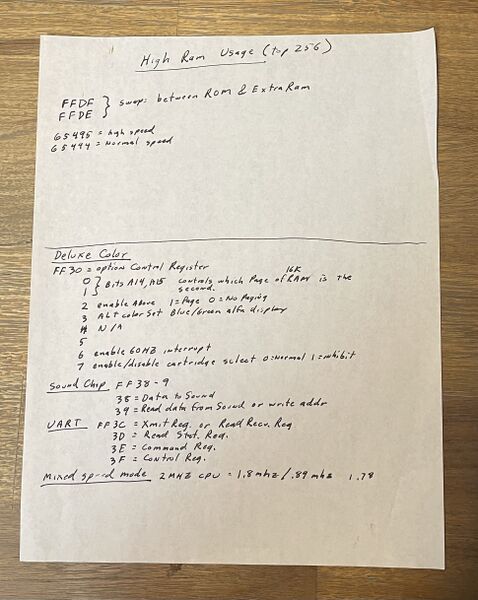 High Ram Usage (top 256)
FFDF } swaps between ROM & Extra Ram
FFDE
65495 = high speed
65494 = Normal speed
Deluxe Color
FF30 = option Control Register
0 } Bits A14, A15 controls which Page of 16K RAM is the
1 second.
2 enable Above 1=Page 0=No Paging
3 ALT color Set Blue/Green alfa display
4 N/A
5
6 enable 60HZ interrupt
7 enable/disable cartridge select 0=Normal 1=inhibit
Sound Chip FF38-9
38 = Data to Sound
39 = Read data from Sound or write addr
UART FF3C = Xmit Reg. or Read Recv. Reg
3D = Read Stat. Reg.
3E = Command Reg.
3F = Control Reg.
Mixed speed mode 2MHZ CPU = 1.8mhz/.89mhz 1.78